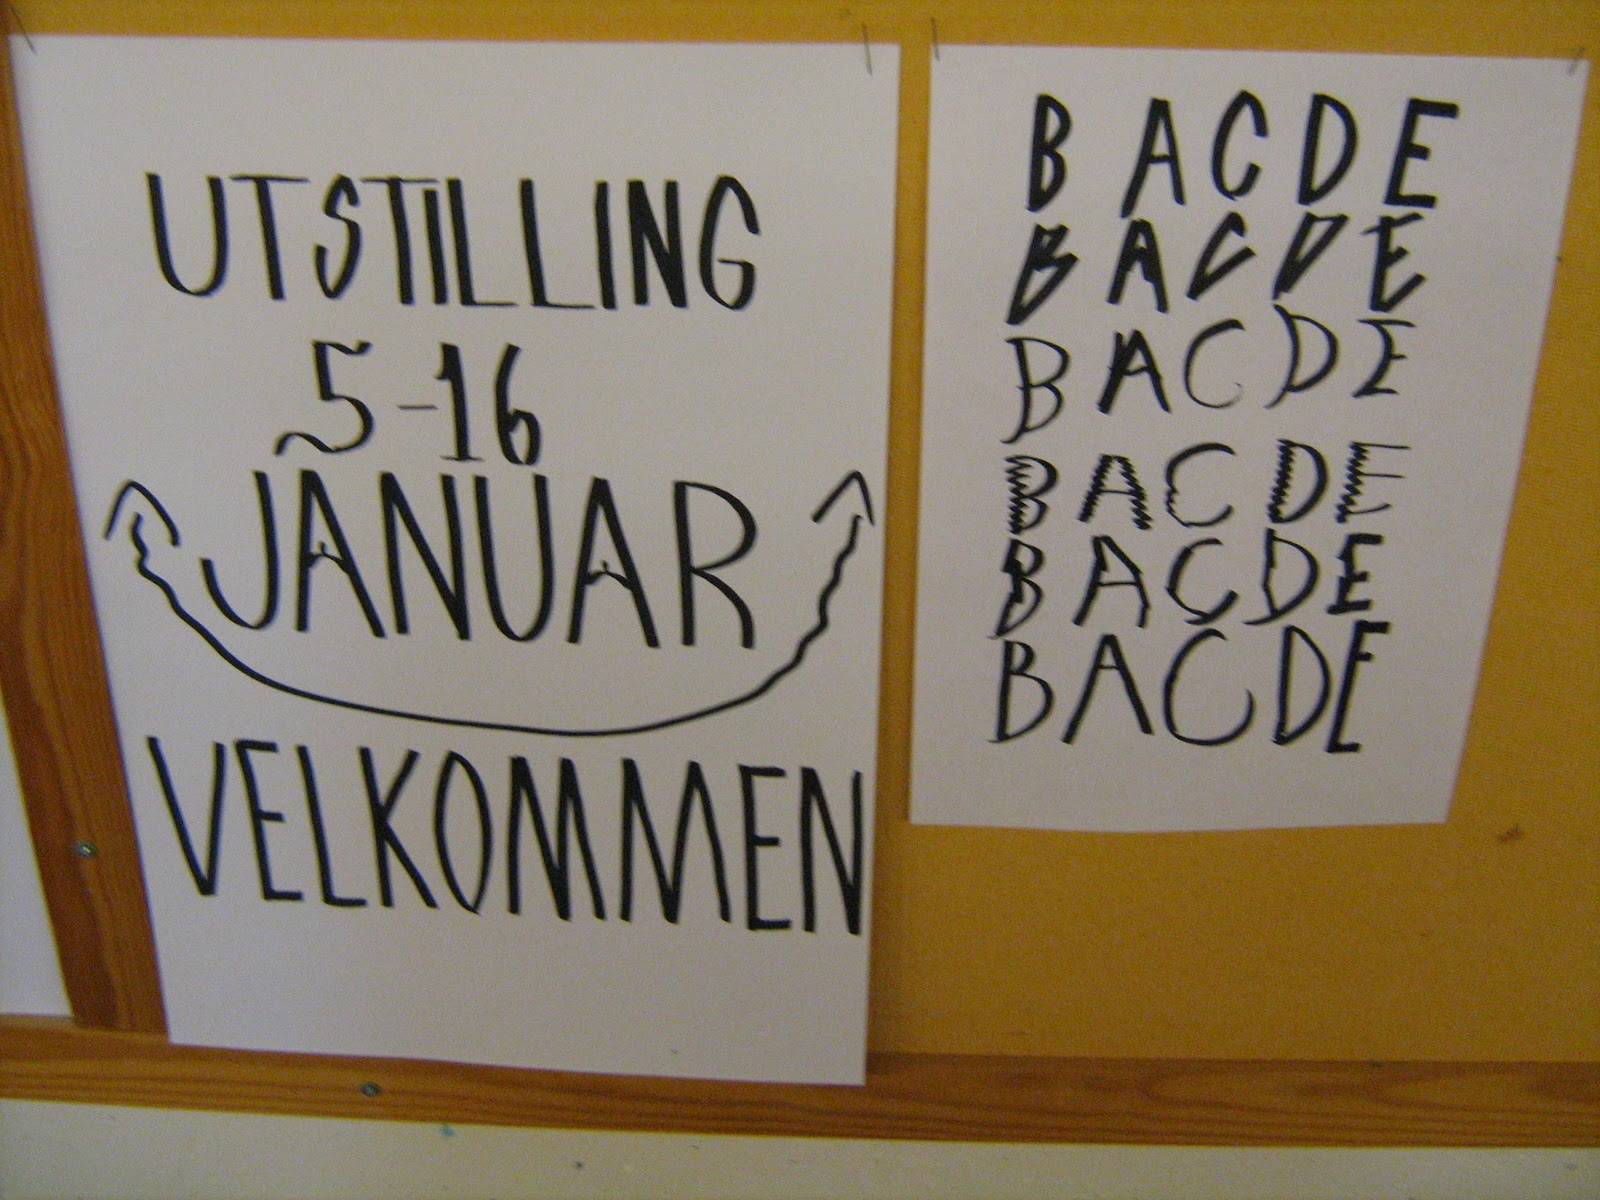 UTSTILLING
5-16
JANUAR
VELKOMMEN
B A C D E
B A C D E
B A C D E
B A C D E
B A C D E
B A C D E